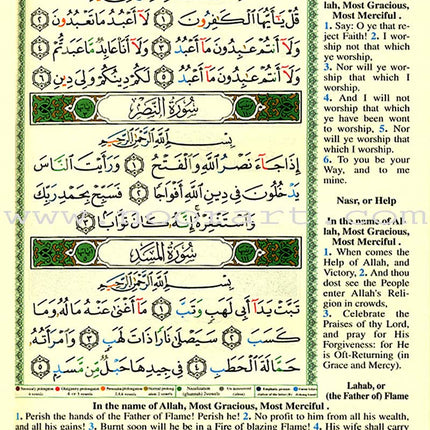 قُلْ يَٰٓأَيُّهَا ٱلْكَٰفِرُونَ ١ لَآ أَعْبُدُ مَا تَعْبُدُونَ
٢ وَلَآ أَنتُمْ عَٰبِدُونَ مَآ أَعْبُدُ ٣ وَلَآ أَنَا۠ عَابِدٌ مَّا عَبَدتُّمْ ٤
وَلَآ أَنتُمْ عَٰبِدُونَ مَآ أَعْبُدُ ٥ لَكُمْ دِينُكُمْ وَلِىَ دِينِ ٦
سُورَةُ النَّصْرِ
بِسْمِ ٱللَّهِ ٱلرَّحْمَٰنِ ٱلرَّحِيمِ
إِذَا جَآءَ نَصْرُ ٱللَّهِ وَٱلْفَتْحُ ١ وَرَأَيْتَ ٱلنَّاسَ
يَدْخُلُونَ فِى دِينِ ٱللَّهِ أَفْوَاجًا ٢ فَسَبِّحْ بِحَمْدِ رَبِّكَ
وَٱسْتَغْفِرْهُ إِنَّهُۥ كَانَ تَوَّابًۢا ٣
سُورَةُ المَسَدِ
بِسْمِ ٱللَّهِ ٱلرَّحْمَٰنِ ٱلرَّحِيمِ
تَبَّتْ يَدَآ أَبِى لَهَبٍ وَتَبَّ ١ مَآ أَغْنَىٰ عَنْهُ مَالُهُۥ وَمَا
كَسَبَ ٢ سَيَصْلَىٰ نَارًا ذَاتَ لَهَبٍ ٣ وَٱمْرَأَتُهُۥ
حَمَّالَةَ ٱلْحَطَبِ ٤ فِى جِيدِهَا حَبْلٌ مِّن مَّسَدٍۭ ٥
lah, Most Gracious,
Most Merciful .
1. Say: O ye that re-
ject Faith! 2. I wor-
ship not that which
ye worship,
3. Nor will ye wor-
ship that which I
worship.
4. And I will not
worship that which
ye have been wont
to worship, 5. Nor
will ye worship that
which I worship.
6. To you be your
Way, and to me
mine.
Nasr, or Help
In the name of Al-
lah, Most Gracious,
Most Merciful .
1. When comes the
Help of Allah, and
Victory, 2. And thou
dost see the People
enter Allah's Reli-
gion in crowds,
3. Celebrate the
Praises of the Lord,
and pray for His
Forgiveness: for He
is Oft-Returning (in
Grace and Mercy).
Lahab, or
(the Father of) Flame
In the name of Allah, Most Gracious, Most Merciful .
1. Perish the hands of the Father of Flame! Perish he! 2. No profit to him from all his wealth,
and all his gains! 3. Burnt soon will he be in a Fire of blazing Flame! 4. His wife shall carry